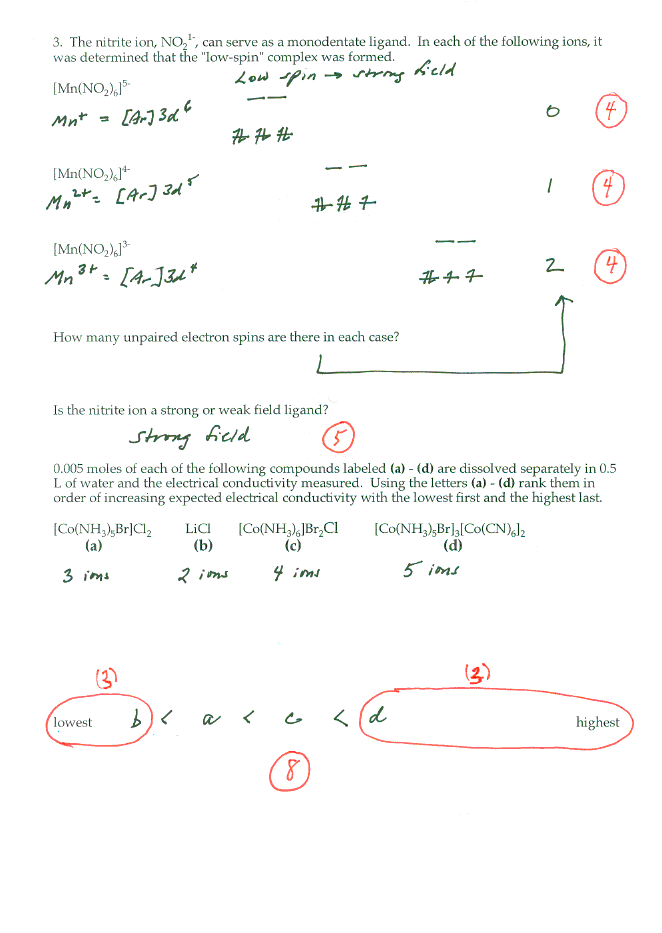 3. The nitrite ion, NO₂¹⁻, can serve as a monodentate ligand. In each of the following ions, it
was determined that the "low-spin" complex was formed.
Low spin → strong field
[Mn(NO₂)₆]⁵⁻
Mn⁺ = [Ar] 3d⁶
0 4
[Mn(NO₂)₆]⁴⁻
Mn²⁺ = [Ar] 3d⁵
1 4
[Mn(NO₂)₆]³⁻
Mn³⁺ = [Ar] 3d⁴
2 4
How many unpaired electron spins are there in each case?
Is the nitrite ion a strong or weak field ligand?
strong field 5
0.005 moles of each of the following compounds labeled (a) - (d) are dissolved separately in 0.5
L of water and the electrical conductivity measured. Using the letters (a) - (d) rank them in
order of increasing expected electrical conductivity with the lowest first and the highest last.
[Co(NH₃)₅Br]Cl₂ LiCl [Co(NH₃)₆]Br₂Cl [Co(NH₃)₅Br]₃[Co(CN)₆]₂
(a) (b) (c) (d)
3 ions 2 ions 4 ions 5 ions
(3) (3)
lowest b < a < c < d highest
8